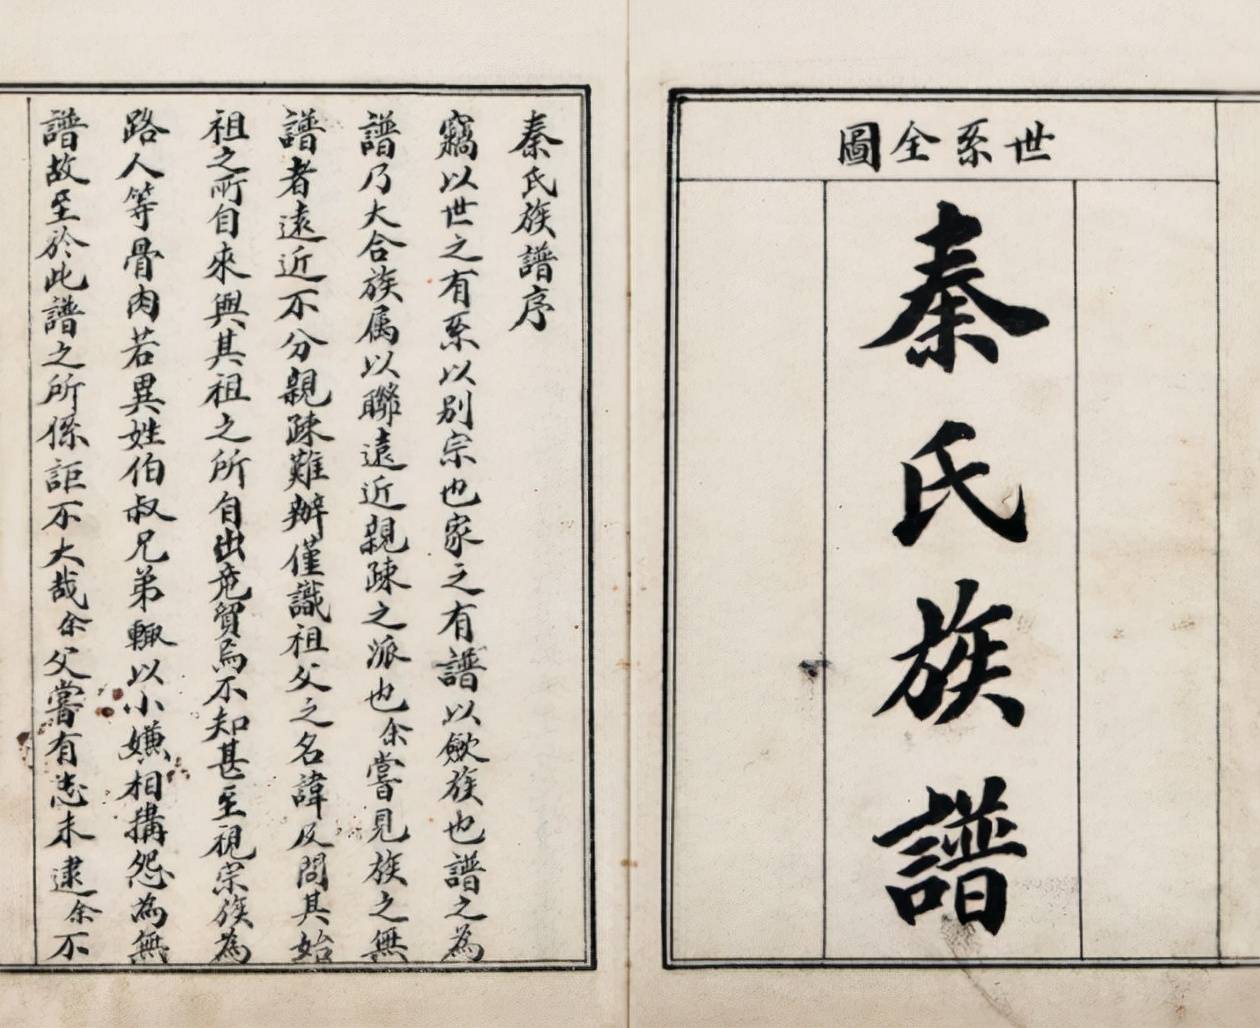 世系全圖
秦氏族譜
秦氏族譜序
竊以世之有系以別宗也家之有譜以歛族也譜之為
譜乃大合族属以聯遠近親疎之派也余嘗見族之無
譜者遠近不分親疎難辦僅識祖父之名諱及問其始
祖之所自來與其祖之所自出竟貿焉不知甚至視宗族為
路人等骨肉若異姓伯叔兄弟輙以小嫌相搆怨為無
譜故至於此譜之所係詎不大哉余父嘗有志未逮余不